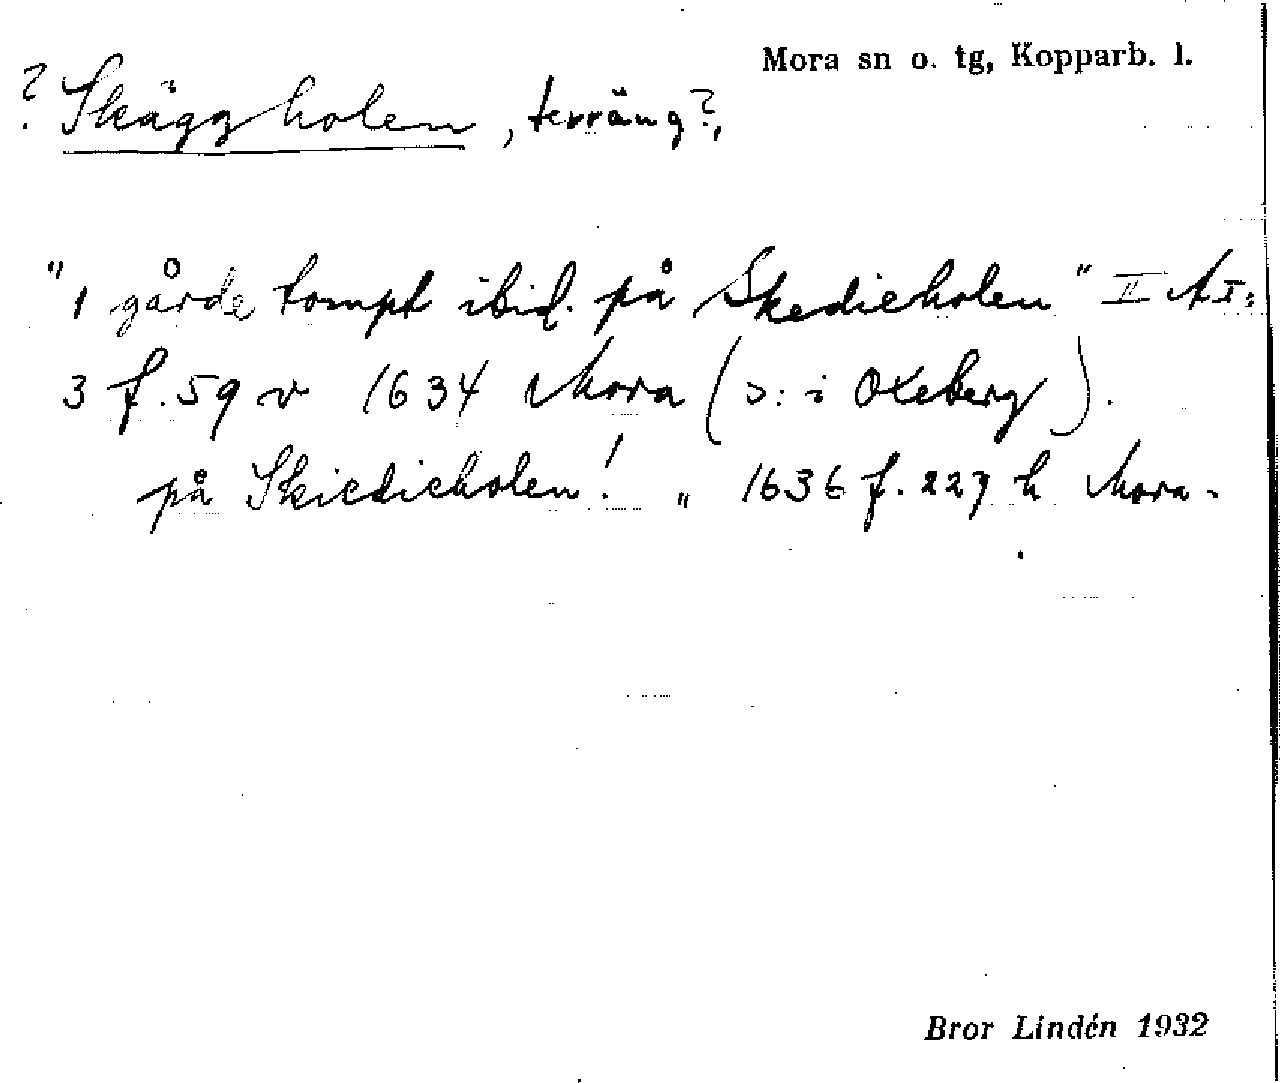 Mora sn o. tg, Kopparb. l.
? Skäggholen, terräng?,
"1 gårde tompt ibid. på Skedieholen" II A I:
3 f. 59 v 1634 Mora (ɔ: i Oxeberg).
på Skiedieholen! „ 1636 f. 227 h Mora.
Bror Lindén 1932